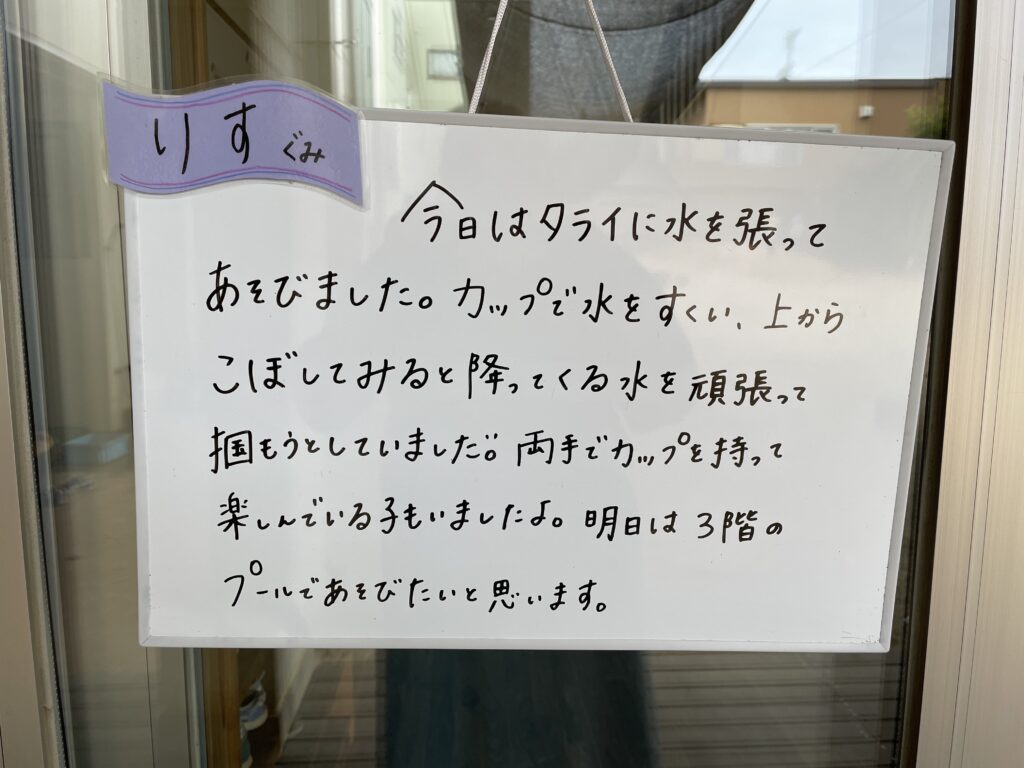 りす ぐみ
今日はタライに水を張って
あそびました。カップで水をすくい、上から
こぼしてみると降ってくる水を頑張って
掴もうとしていました!! 両手でカップを持って
楽しんでいる子もいましたよ。明日は3階の
プールであそびたいと思います。